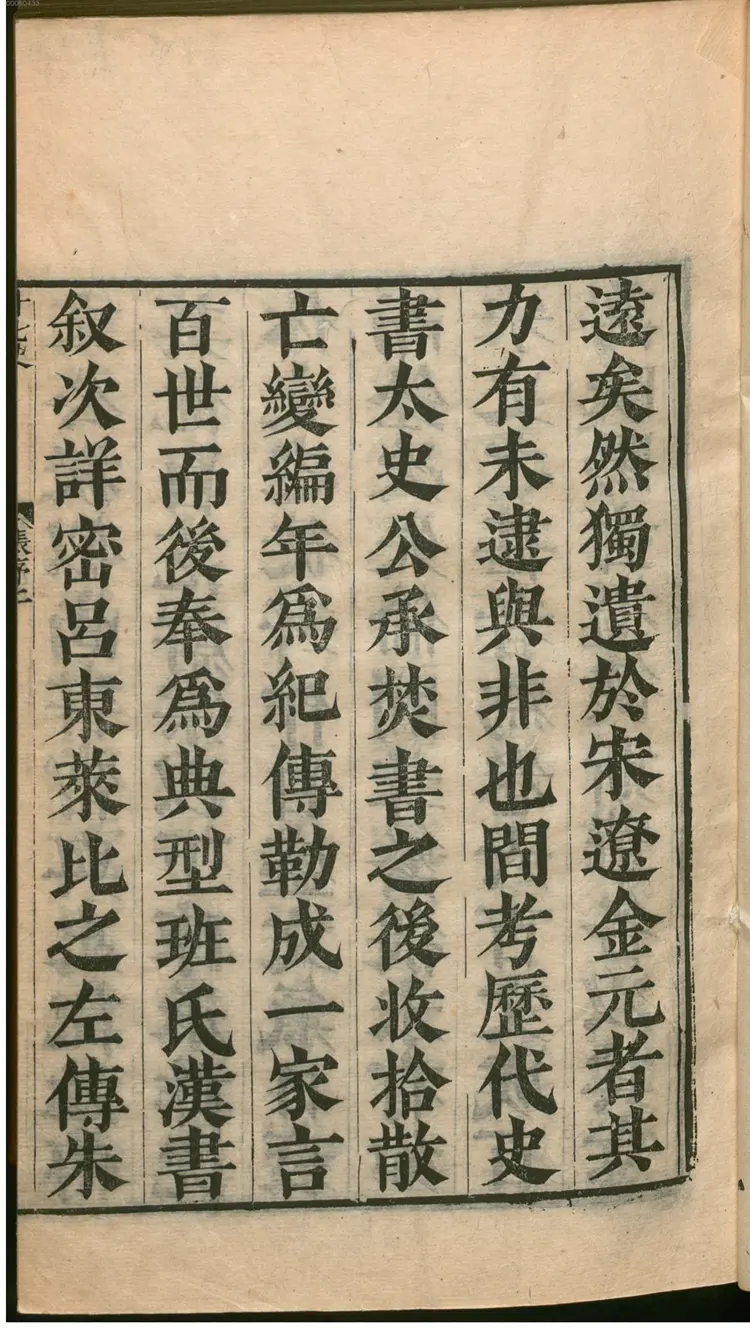 遠矣然獨遺於宋遼金元者其
力有未逮與非也間考歷代史
書太史公承焚書之後收拾散
亡變編年爲紀傳勒成一家言
百世而後奉爲典型班氏漢書
叙次詳密呂東萊比之左傳朱